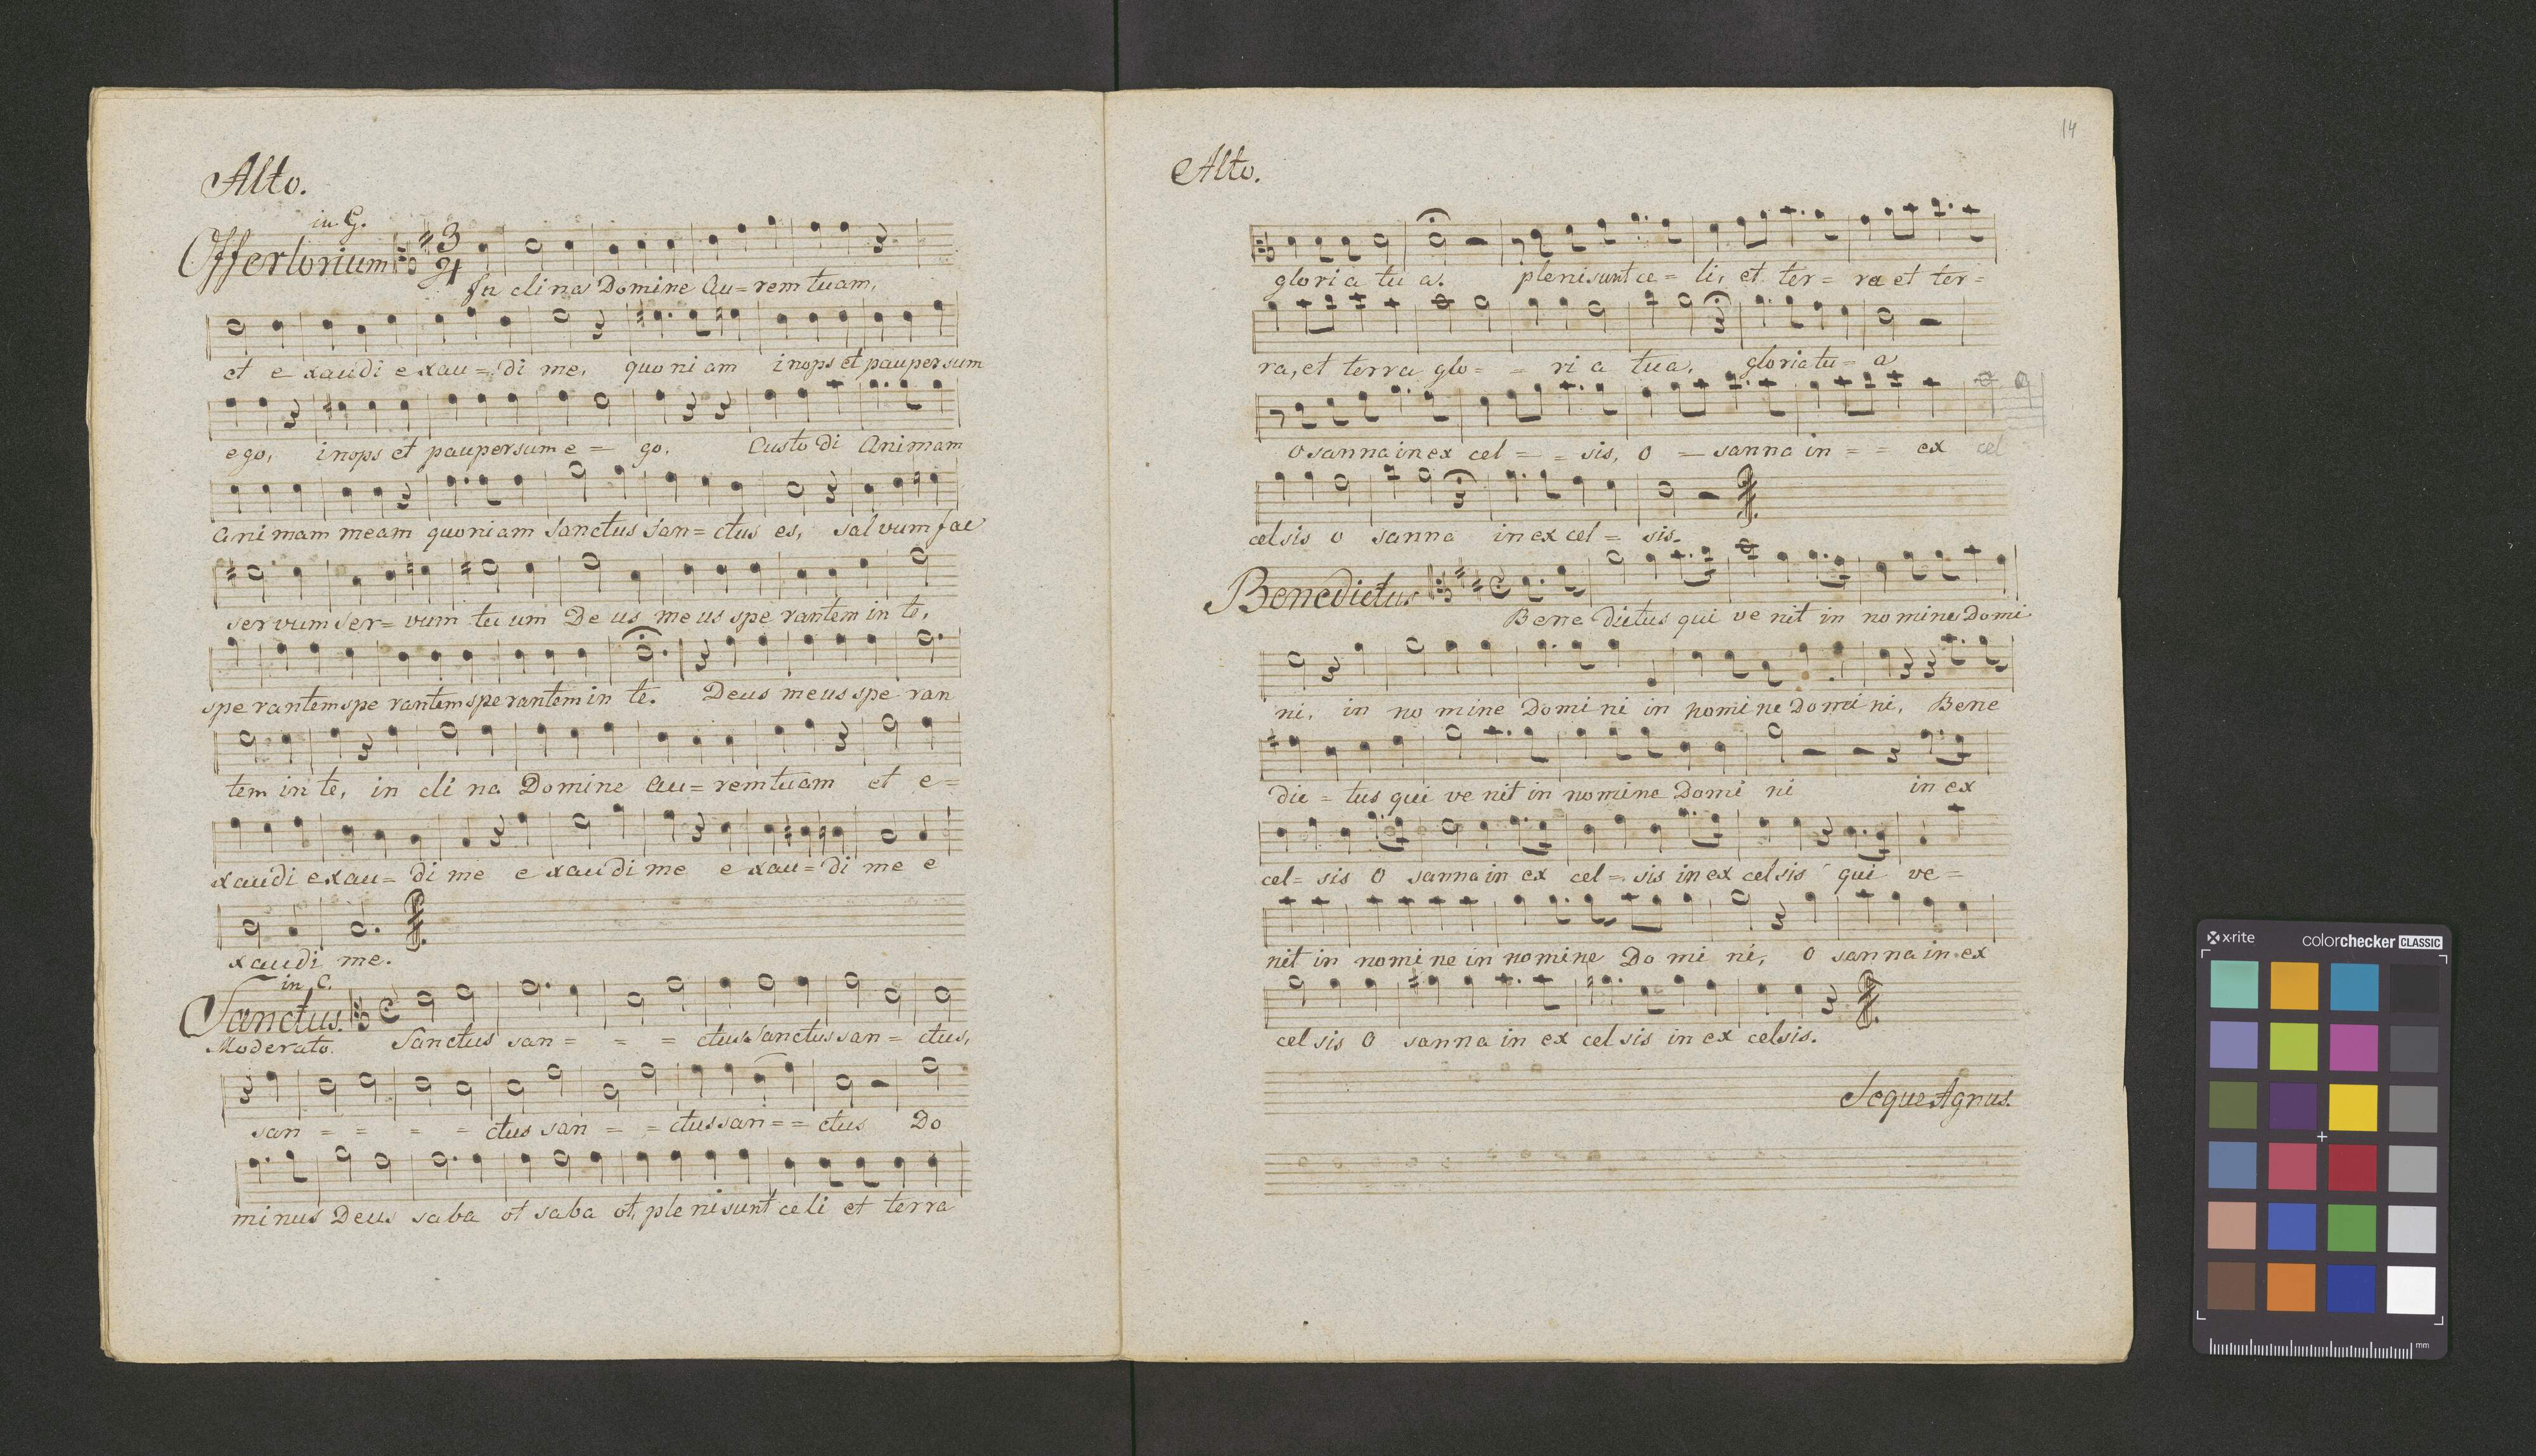 Alto.
in G.
Offertorium
3
4
In clina Domine Au=rem tuam,
et e xaudi exau=di me, quoniam inops et pauper sum
ego, inops et pauper sum e = go. Custodi Animam
Animam meam quoniam Sanctus San=ctus es, salvum fac
servum ser=vum tuum Deus meus sperantem in te,
sperantem sperantem sperantem in te. Deus meus speran
tem in te, in cli na Domine Au=rem tuam et e=
xaudi exau=di me e xaudi me e xau=di me e
xaudi me.
in C.
Sanctus.
Moderato.
Sanctus san = = = ctus Sanctus san = ctus,
san = = = = ctus san = = ctus san = = ctus Do
minus Deus saba ot saba ot, pleni sunt celi et terra
14
Alto.
gloria tu a. pleni sunt ce = li, et ter = ra et ter=
ra, et terra glo = = ri a tua, gloria tu = a
O sanna in ex cel = = sis, O = sanna in = = ex cel
celsis O sanna in ex cel = sis.
Benedictus
Bene dictus qui ve nit in nomine Domi
ni, in nomine Domini in nomine Domi ni, Bene
dic = tus qui ve nit in nomine Domi ni in ex
cel= sis O sanna in ex cel = sis in ex celsis qui ve =
nit in nomine in nomine Do mi ni, O sanna in ex
cel sis O sanna in ex cel sis in ex celsis.
Seque Agnus.
x-rite
colorchecker CLASSIC
mm